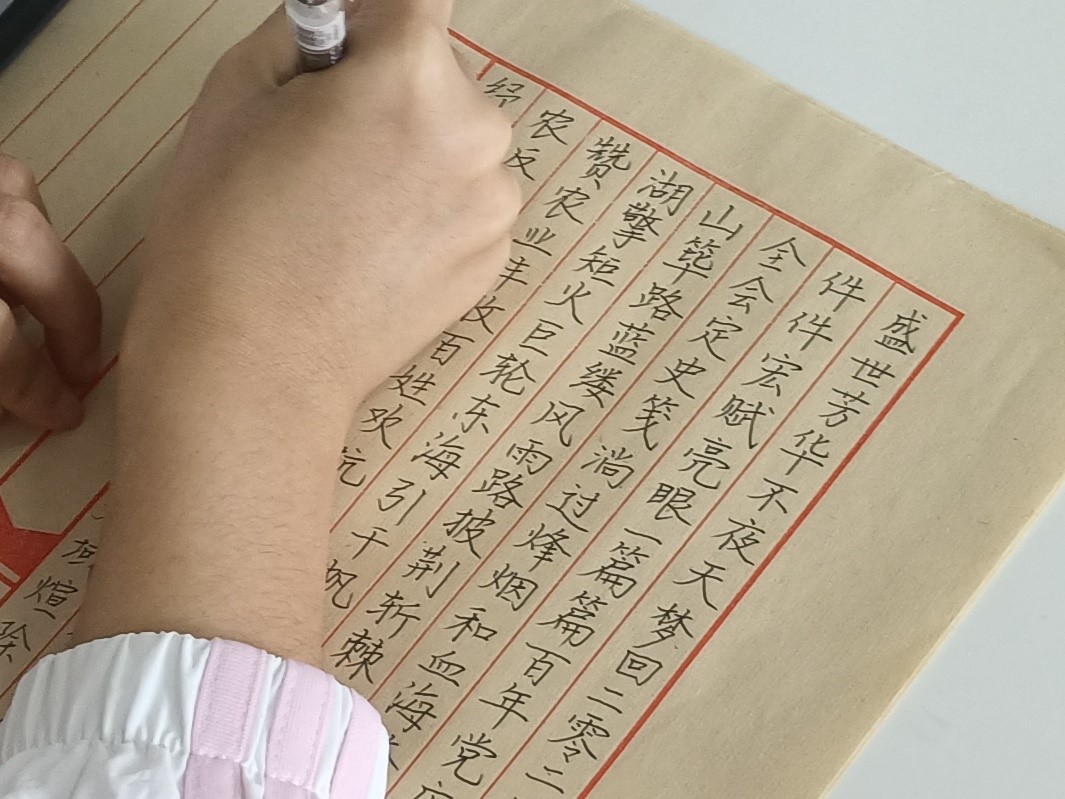 盛世芳华不夜天梦回二零二
件件宏赋亮眼一篇篇百年党
全会定史笺淌过烽烟和血海
山筚路蓝缕风雨路披荆斩棘
湖擎矩火巨轮东海引千帆
赞农业丰收百姓欢
农反
煊
除